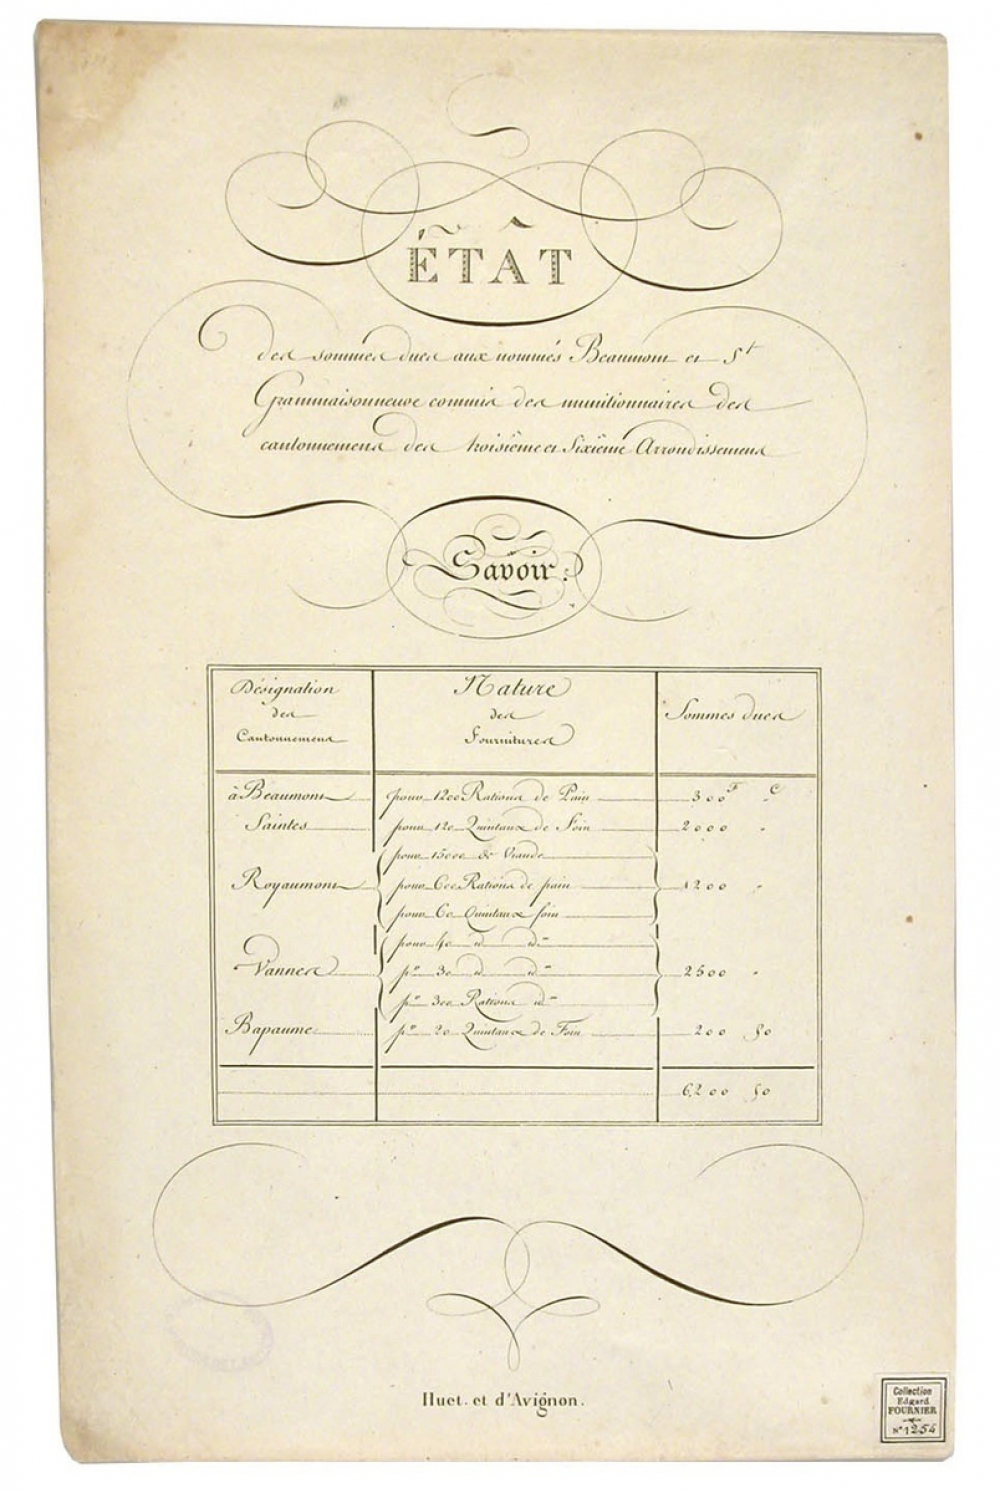 ÉTÂT
des sommes dues aux nommés Beaumont et St
Grammaisonneuve commis des munitionnaires des
cantonnemens des troisième et Sixième Arrondissemens
Savoir:
Désignation des Cantonnemens
Nature des Fournitures
Sommes dues
à Beaumont pour 1200 Rations de Pain 300F "C
Saintes pour 120 Quintaux de Foin 2000 "
pour 15000 de Viande
Royaumont pour 600 Rations de pain 1200 "
pour 60 Quintaux foin
pour 40 d do
Vannes po 30 d do 2500 "
po 300 Rations do
Bapaume po 20 Quintaux de Foin 200 50
6,200 50
Huet. et d'Avignon.
Collection
Edgard
FOURNIER
No 1254